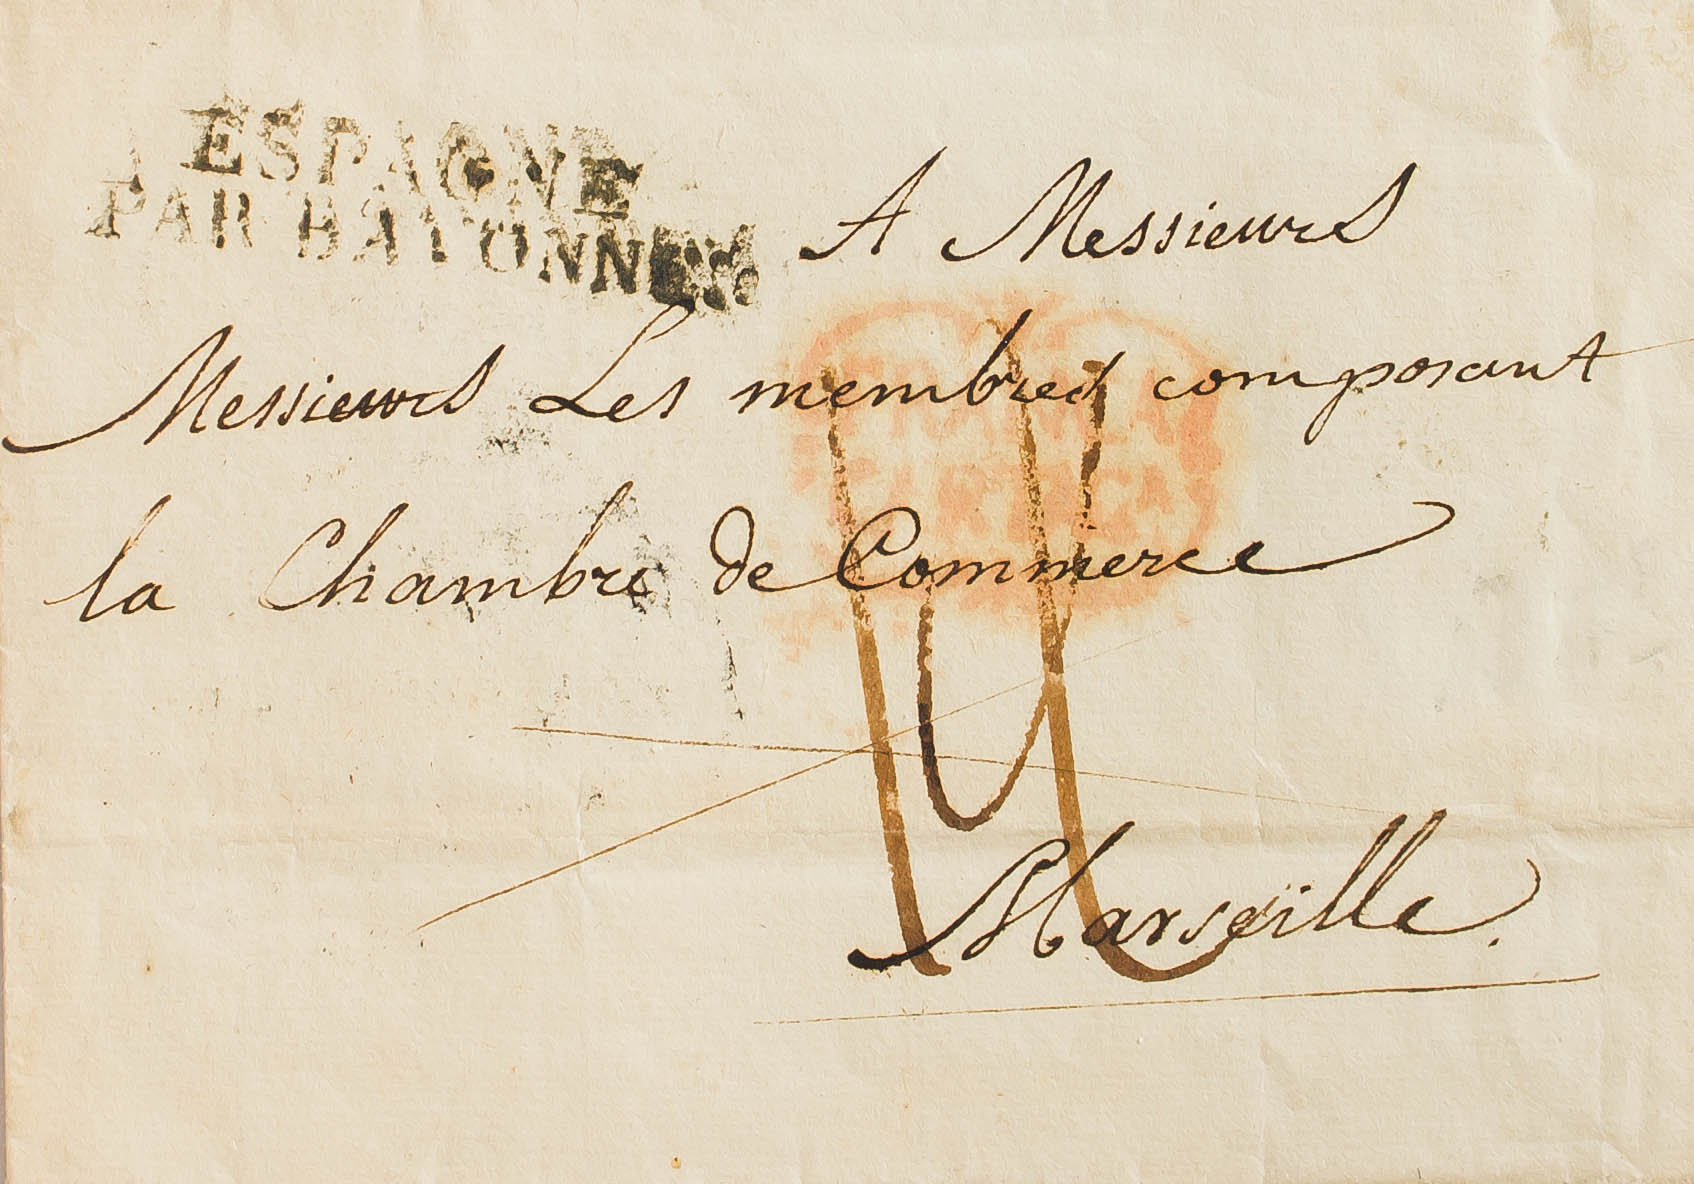 ESPAGNE
PAR BAYONNE
A Messieurs
Messieurs Les membres composant
la Chambre de Commerce
FRANCA
CARTAGA
Marseille.